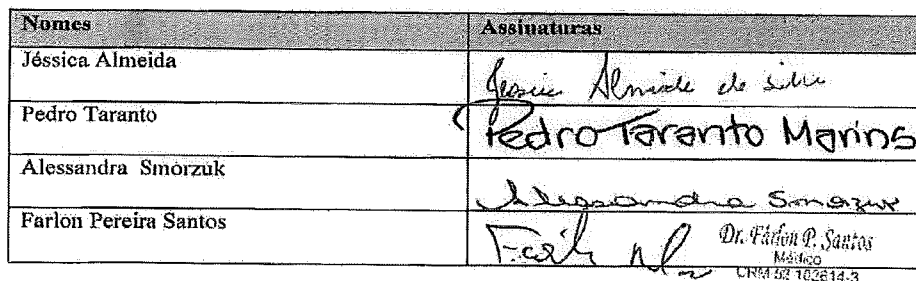 Nomes Assinaturas
Jéssica Almeida Jessica Almeida da Silva
Pedro Taranto Pedro Taranto Marins
Alessandra Smorzuk Alessandra
Farlon Pereira Santos
Dr. Farlon P. Santos
Médico
CRM 52 102614-3